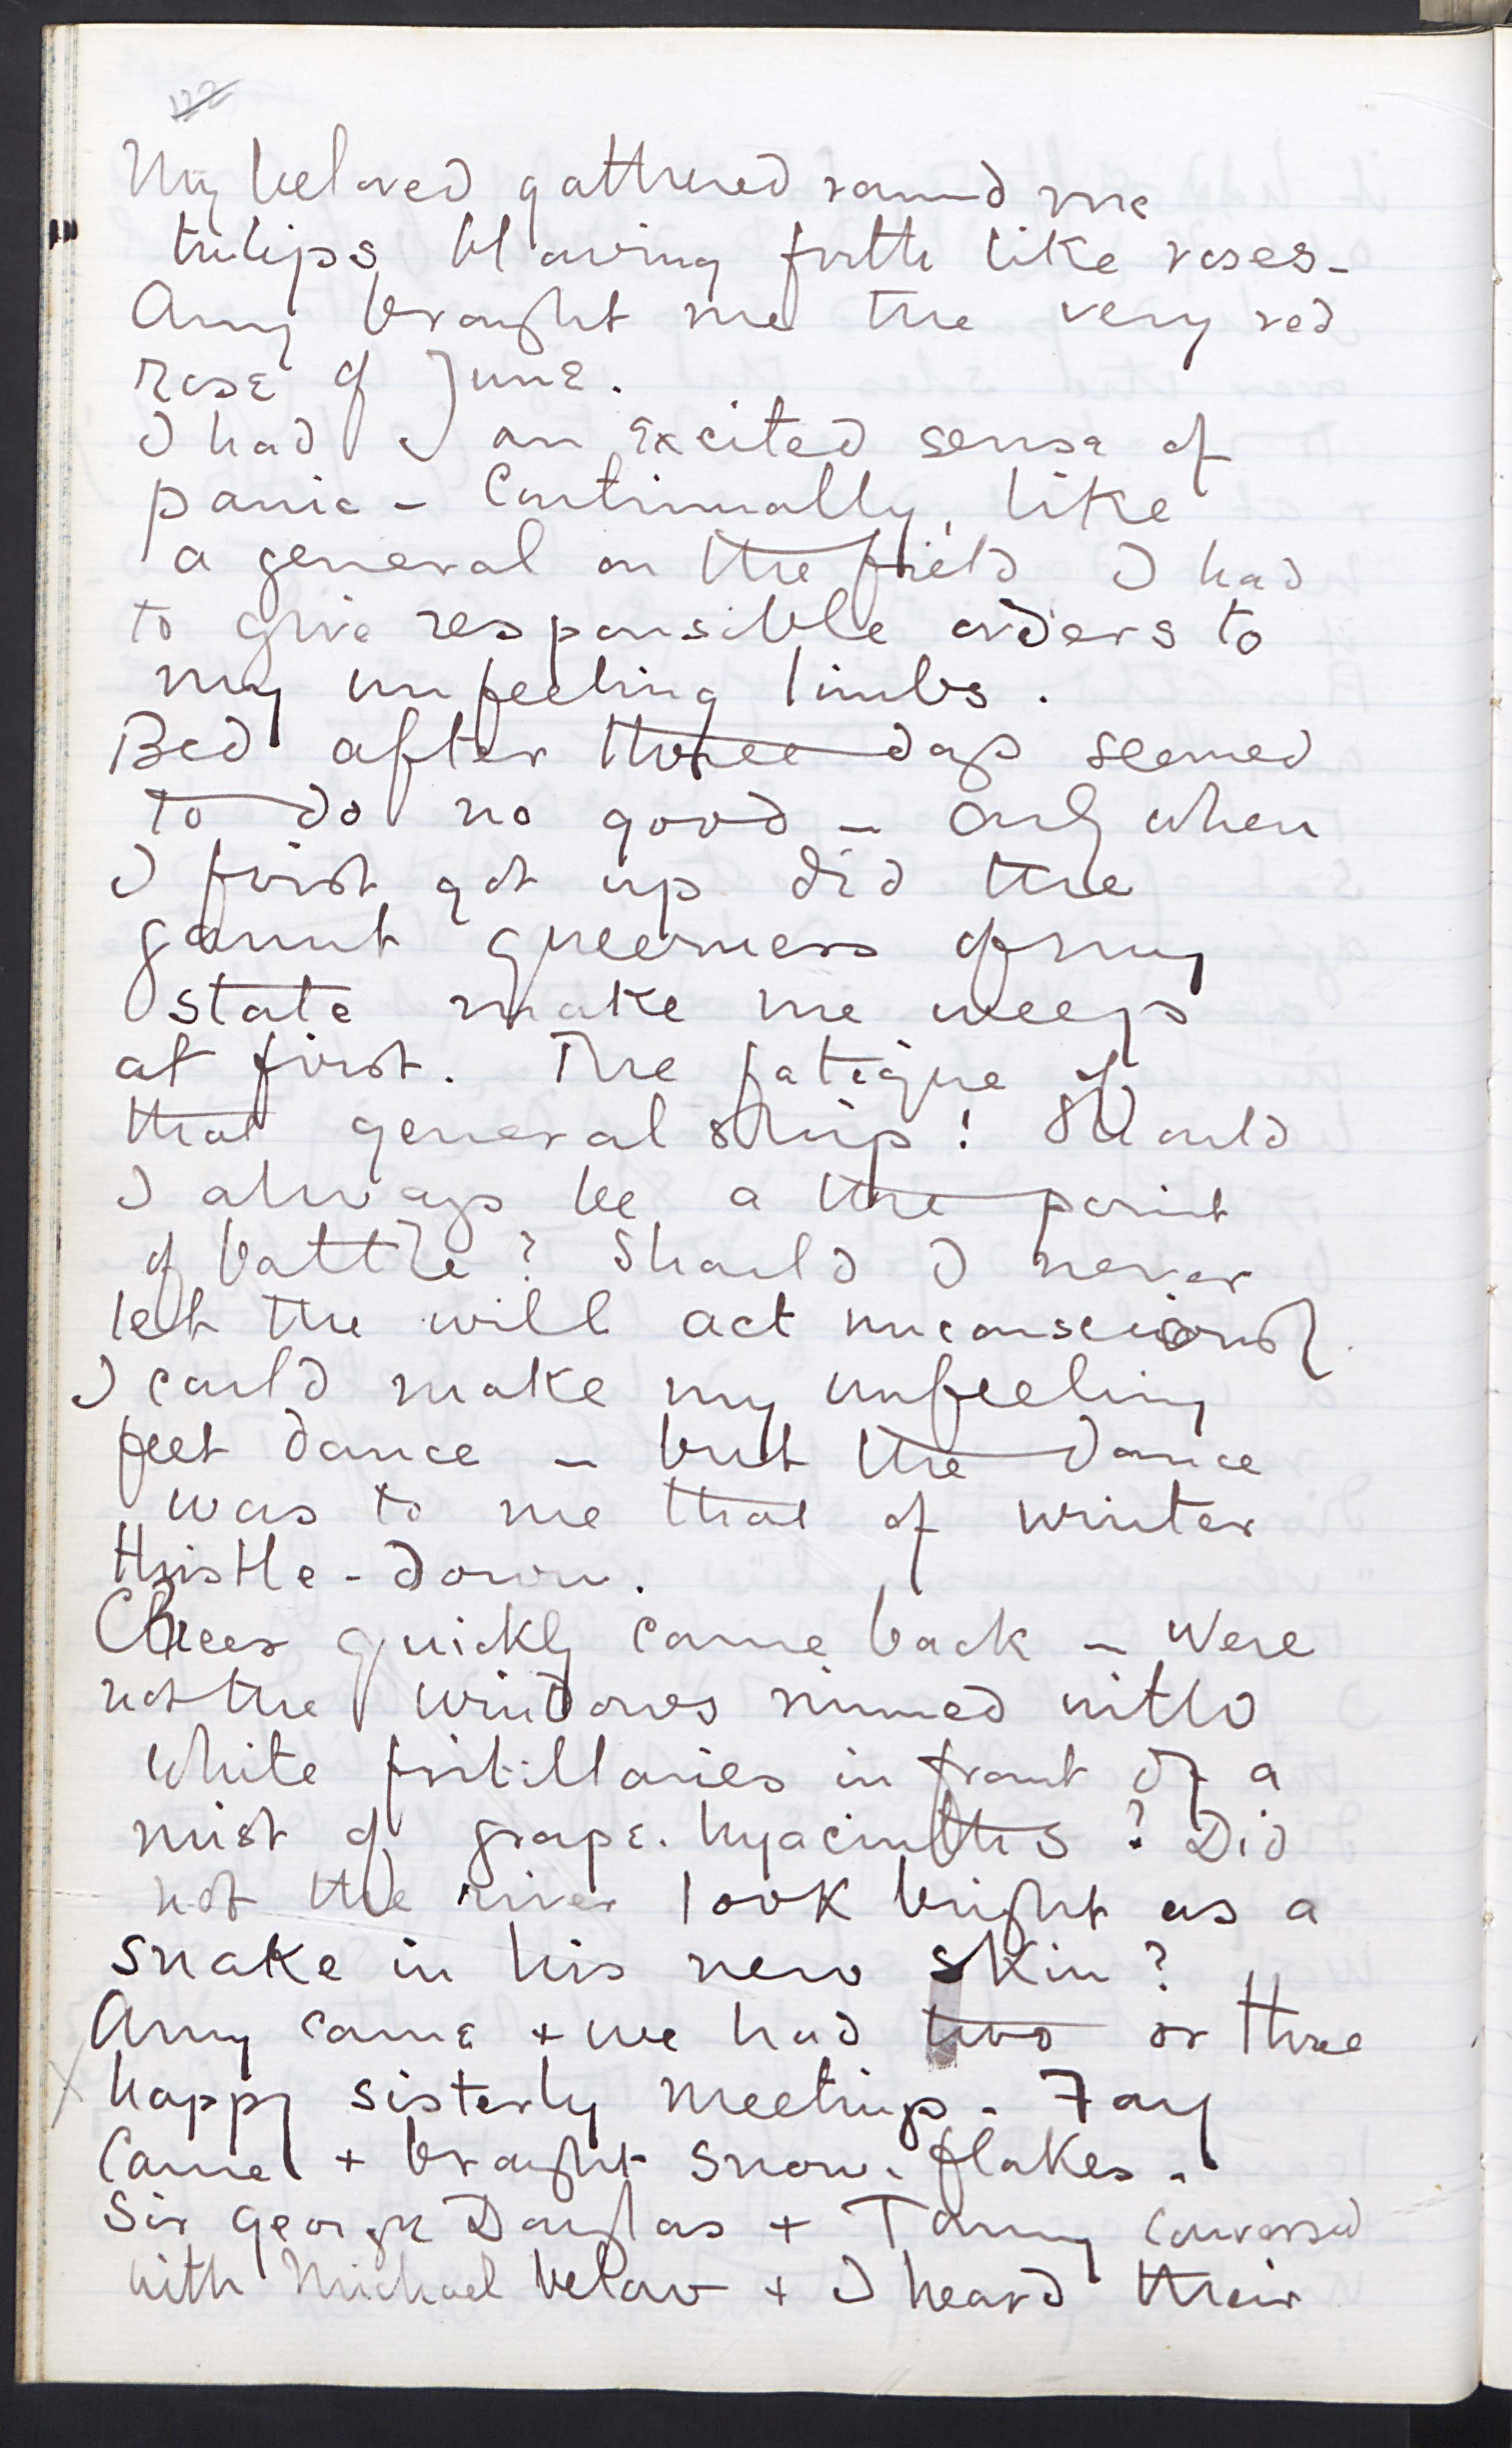 122
My beloved gathered round me
tulips blowing forth like roses -
Amy brought me the very red
rose of June.
I had an excited sense of
panic - Continually, like
a general on the field I had
to give responsible orders to
my unfeeling limbs.
Bed after three days seemed
to do no good - only when
I first got up did the
gaunt queerness of my
state make me weep
at first. The fatigue of
that generalship! Should
I always be a the point
of battle? Should I never
let the will act unconsciously.
I could make my unfeeling
feet dance - but the dance
was to me that of winter
thistle-down.
Cheer quickly came back - Were
not the windows rimmed with
white fritillaries in front of a
mist of grape-hyacinths? Did
not the river look bright as a
snake in his new skin?
Amy came + we had two or three
happy sisterly meetings. Fay
came + brought snow-flakes.
Sir George Douglas + Tommy conversed
with Michael below + I heard their